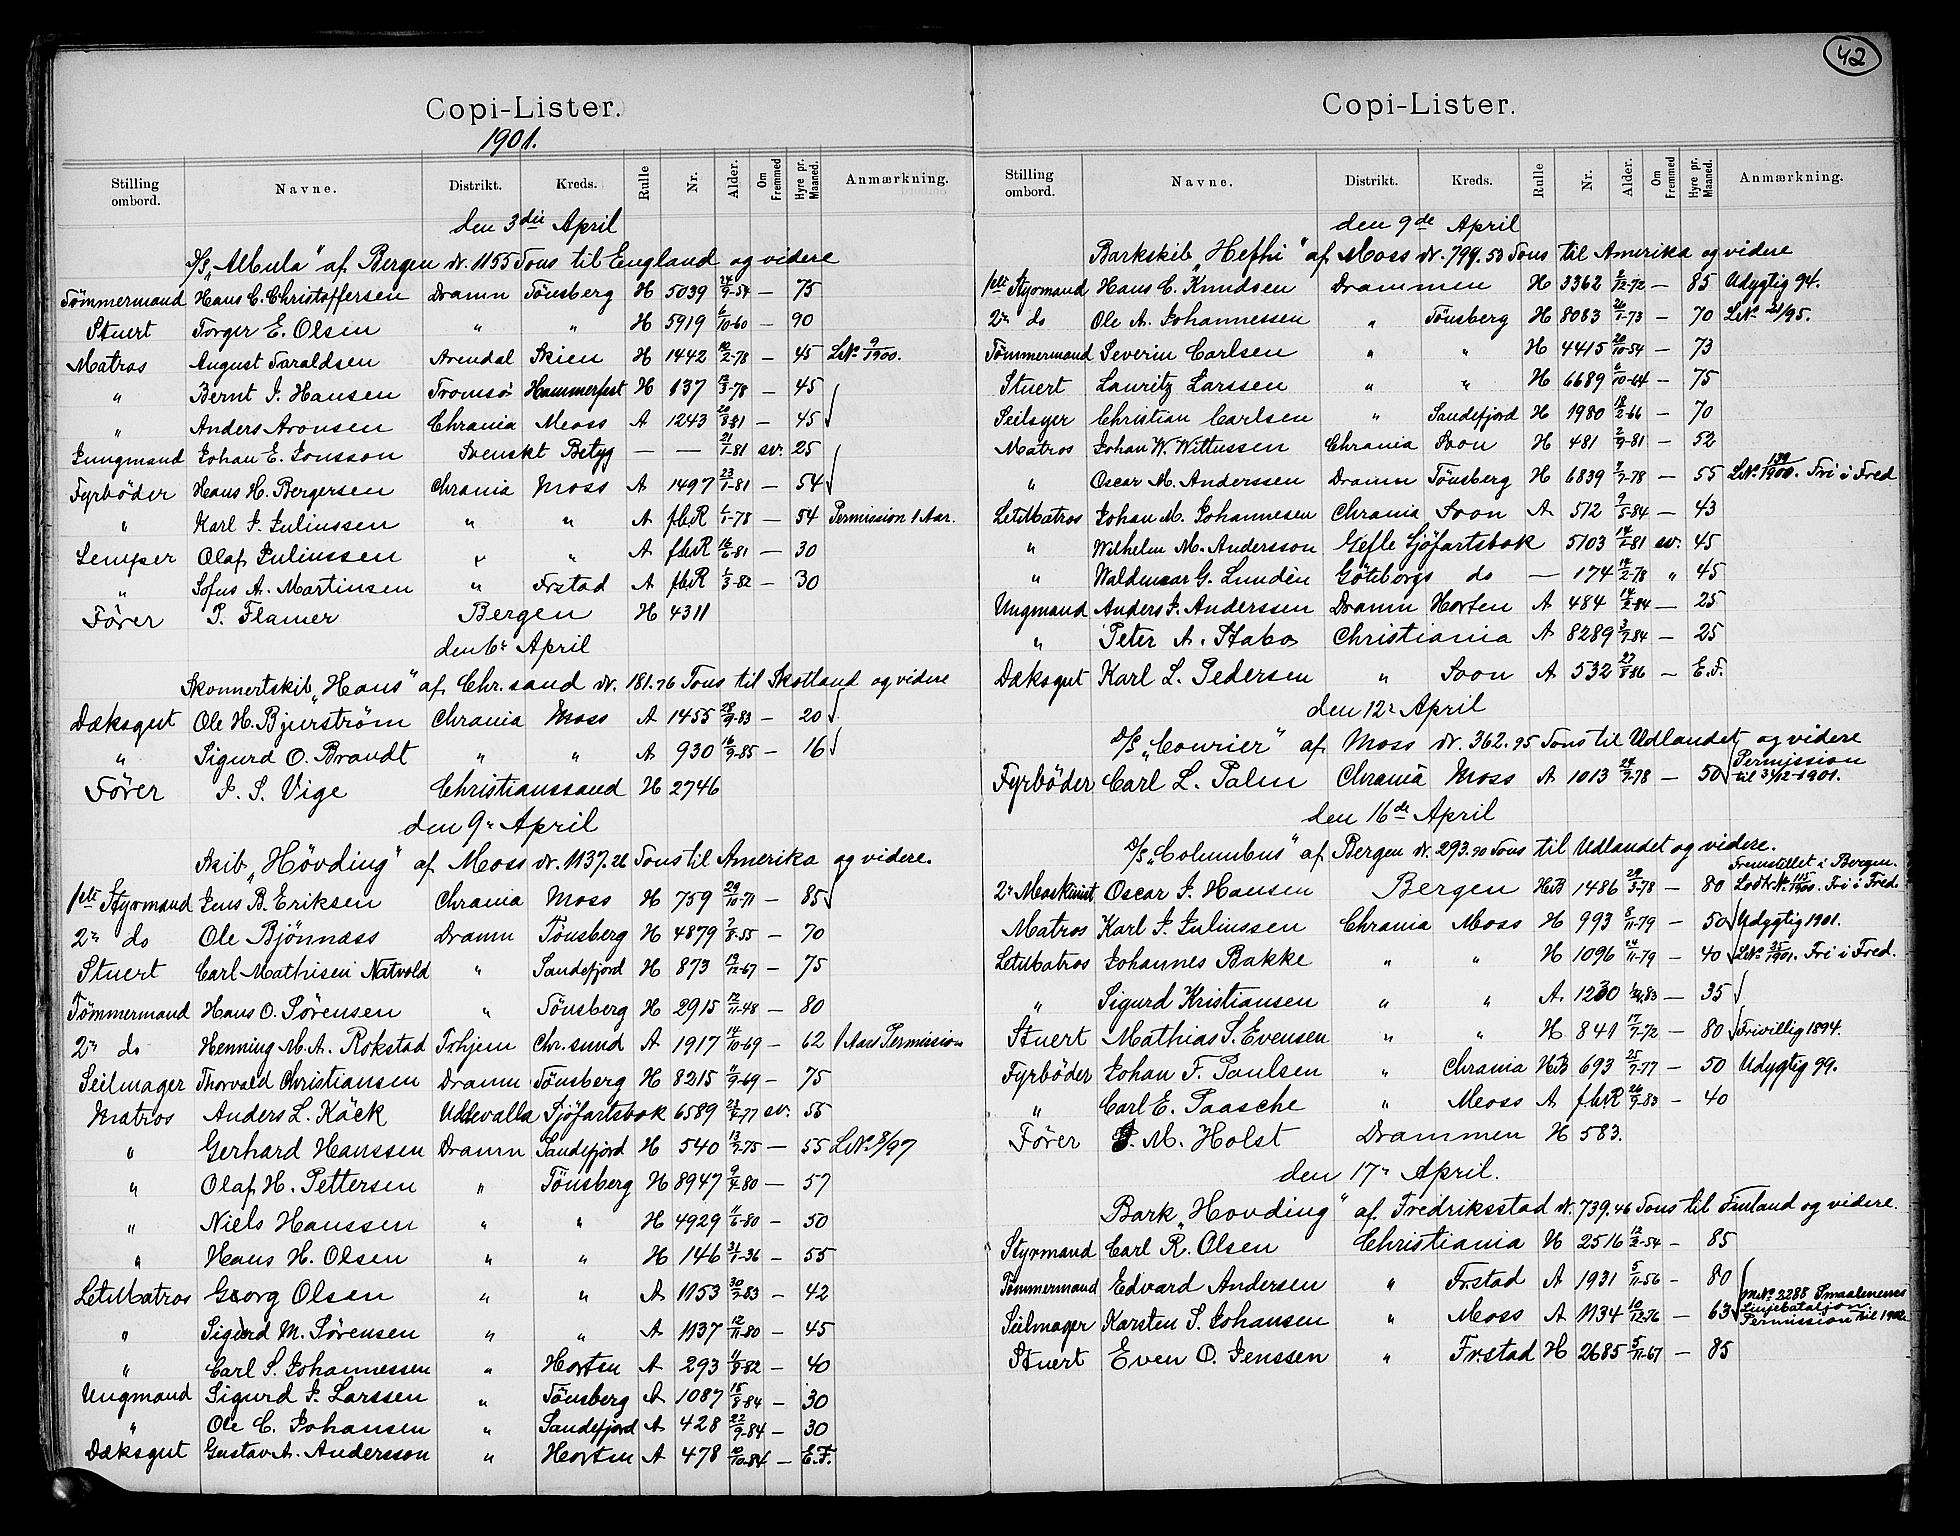 42
Copi-Lister.
1901.
Stilling ombord. Navne. Distrikt. Kreds. Rulle Nr. Alder. Om Fremmed Hyre pr. Maaned. Anmærkning.
den 3die April
D/S „Albula" af Bergen dr. 1155 Tons til England og videre
Tömmermand Hans C. Christoffersen Dramn Tönsberg H 5039 24/9-54 — 75
Stuert Torger E. Olsen " " H 5919 6/10-60 — 90
Matros August Taraldsen Arendal Skien H 1442 10/2-78 — 45 LNo 9/1900.
" Bernt J. Hansen Tromsö Hammerfest H 137 13/3-78 — 45
" Anders Aronsen Chrania Moss A 1243 20/8-81 — 45
Jungmand Johan E. Jonsson Svenskt Betyg — — 21/1-81 sv. 25
Fyrböder Hans H. Bergersen Chrania Moss A 1497 23/1-81 — 54
" Karl J. Juliussen " " A fbR 6/1-78 — 54 Permission 1 Aar.
Lemper Olaf Juliussen " " A fbR 16/6-81 — 30
" Sofus A. Martinsen " Frstad A fbR 1/3-82 — 30
Förer P. Flamer Bergen H 4311
den 6te April
Skonnertskib „Hans" af Chr.sand dr. 181.76 Tons til Skotland og videre
Dæksgut Ole H. Bjurström Chrania Moss A 1455 28/9-83 — 20
" Sigurd O. Brandt " " A 930 16/9-85 — 16
Förer J. S. Vige Christianssand H 2746
den 9de April
Skib „Hövding" af Moss dr. 1137.26 Tons til Amerika og videre.
1ste Styrmand Jens B. Eriksen Chrania Moss H 759 29/10-71 — 85
2n do Ole Bjönnæss Dramn Tönsberg H 4879 7/8-55 — 70
Stuert Carl Mathisen Natvold " Sandefjord H 873 13/12-67 — 75
Tömmermand Hans O. Sörensen " Tönsberg H 2915 12/11-48 — 80
2n do Henning M. A. Rokstad Trhjem Chr.sund A 1917 14/10-69 — 62 1 Aars Permission
Seilmager Thorvald Christiansen Dramn Tönsberg H 8215 11/9-69 — 75
Matros Anders L. Käck Uddevalla Sjöfartsbok 6589 23/6-77 sv. 55
" Gerhard Hanssen Dramn Sandefjord H 540 13/7-75 — 55 LNo 8/97
" Olaf H. Pettersen " Tönsberg H 8947 9/4-80 — 57
" Niels Hanssen " " H 4929 11/6-80 — 50
" Hans H. Olsen " " H 146 31/1-36 — 55
LetMatros Georg Olsen " " A 1153 30/7-83 — 42
" Sigurd M. Sörensen " " A 1137 12/11-80 — 45
" Carl S. Johannessen " Horten A 293 11/8-82 — 40
Ungmand Sigurd J. Larssen " Tönsberg A 1087 15/8-84 — 30
" Ole C. Johansen " Sandefjord A 428 22/9-84 — 30
Dæksgut Gustav A. Andersson " Horten A 478 10/10-84 — E.F.
Copi-Lister.
Stilling ombord. Navne. Distrikt. Kreds. Rulle Nr. Alder. Om Fremmed Hyre pr. Maaned. Anmærkning.
den 9de April
Barkskib „Hefhi" af Moss dr. 799.53 Tons til Amerika og videre
1ste Styrmand Hans C. Knudsen Drammen H 3362 5/12-72 — 85 Udygtig 94.
2n do Ole A. Johannessen " Tönsberg H 8083 26/1-73 — 70 LNo 21/95.
Tömmermand Severin Carlsen " " H 4415 20/10-54 — 73
Stuert Lauritz Larssen " " H 6689 6/10-64 — 75
Seilsyer Christian Carlsen " Sandefjord H 1980 18/2-66 — 70
Matros Johan W. Wittussen Chrania Soon H 481 2/9-81 — 52
" Oscar M. Anderssen Dramn Tönsberg H 6839 3/7-78 — 55 LNo 139/1900. Fri i Fred
LetMatros Johan M. Johannesen Chrania Soon A 512 9/5-84 — 43
" Wilhelm M. Andersson Gefle Sjöfartsbok 5103 14/1-81 sv. 45
" Waldemar G. Lundèn Göteborgs do — 174 12/2-78 " 45
Ungmand Anders J. Anderssen Dramn Horten A 484 14/2-84 — 25
" Peter A. Stabo Christiania A 8289 3/7-84 — 25
Dæksgut Karl L. Pedersen " Soon A 532 27/8-86 — E.F.
den 12te April
D/S „Courier" af Moss dr. 362.95 Tons til Udlandet og videre
Fyrböder Carl L. Palm Chrania Moss A 1013 24/7-78 — 50 Permission til 31/12-1901.
den 16de April
D/S „Columbus" af Bergen dr. 293.70 Tons til Udlandet og videre.
2n Maskinist Oscar J. Hansen Bergen HB 1486 29/3-78 — 80 Fremstillet i Bergen. Lodtr.No 115/1900. Fri i Fred.
Matros Karl J. Juliussen Chrania Moss H 993 8/11-79 — 50 Udygtig 1901.
LetMatros Johannes Bakke " " H 1096 24/11-79 — 40 LNo 35/1901. Fri i Fred.
" Sigurd Kristiansen " " A. 1230 — 35
Stuert Mathias S. Evensen " " H 841 17/7-72 — 80 Frivillig 1894.
Fyrböder Johan F. Paulsen " Chrania HB 693 25/7-77 — 50 Udygtig 99.
" Carl E. Paasche " Moss A fbR 26/9-83 — 40
Förer J. M. Holst Drammen H 583.
den 17de April.
Bark „Hovding" af Fredriksstad dr. 739.46 Tons til Finland og videre.
Styrmand Carl R. Olsen Christiania H 2516 12/2-54 — 85
Tömmermand Edvard Andersen " Frstad A 1931 5/11-56 — 80
Seilmager Karsten S. Johansen " Moss A 1134 10/12-76 — 63 MNo 3288 Smaalenenes Linjebataljon. Permission til 1902.
Stuert Even O. Jenssen " Frstad H 2685 5/11-67 — 85